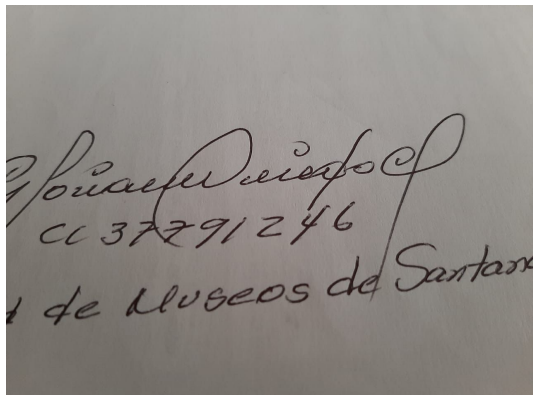 Gloria
CC 37791246
d de Museos de Santan